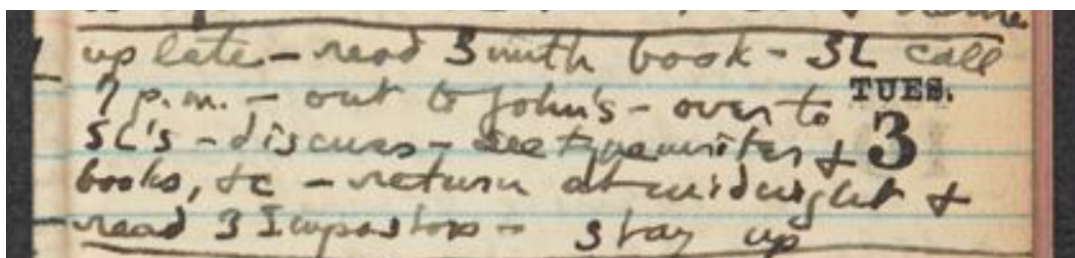 up late – read Smith book – SL call
7 p.m. – out to John's – over to TUES.
SL's – discuss – see typewriter & 3
books, &c – return at midnight &
read 3 Impostors – stay up